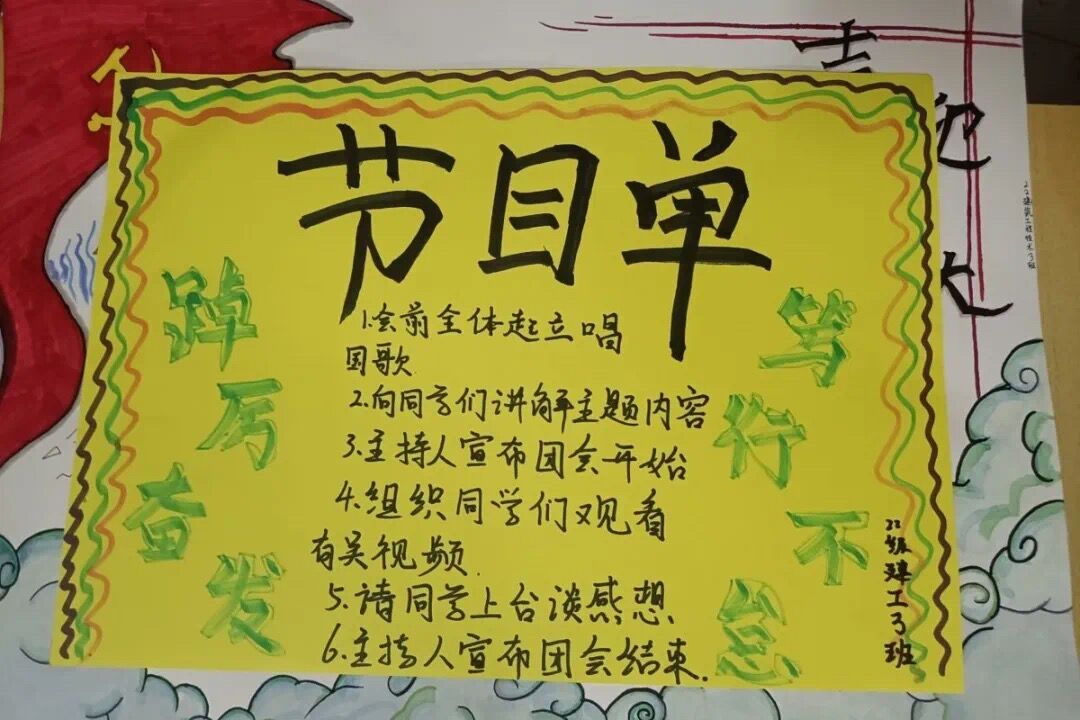 节目单
踔厉奋发
1.会前全体起立唱
国歌
2.向同学们讲解主题内容
3.主持人宣布团会开始
4.组织同学们观看
有关视频.
5.请同学上台谈感想
6.主持人宣布团会结束.
笃行不怠
22级建工3班
22建筑工程技术3班